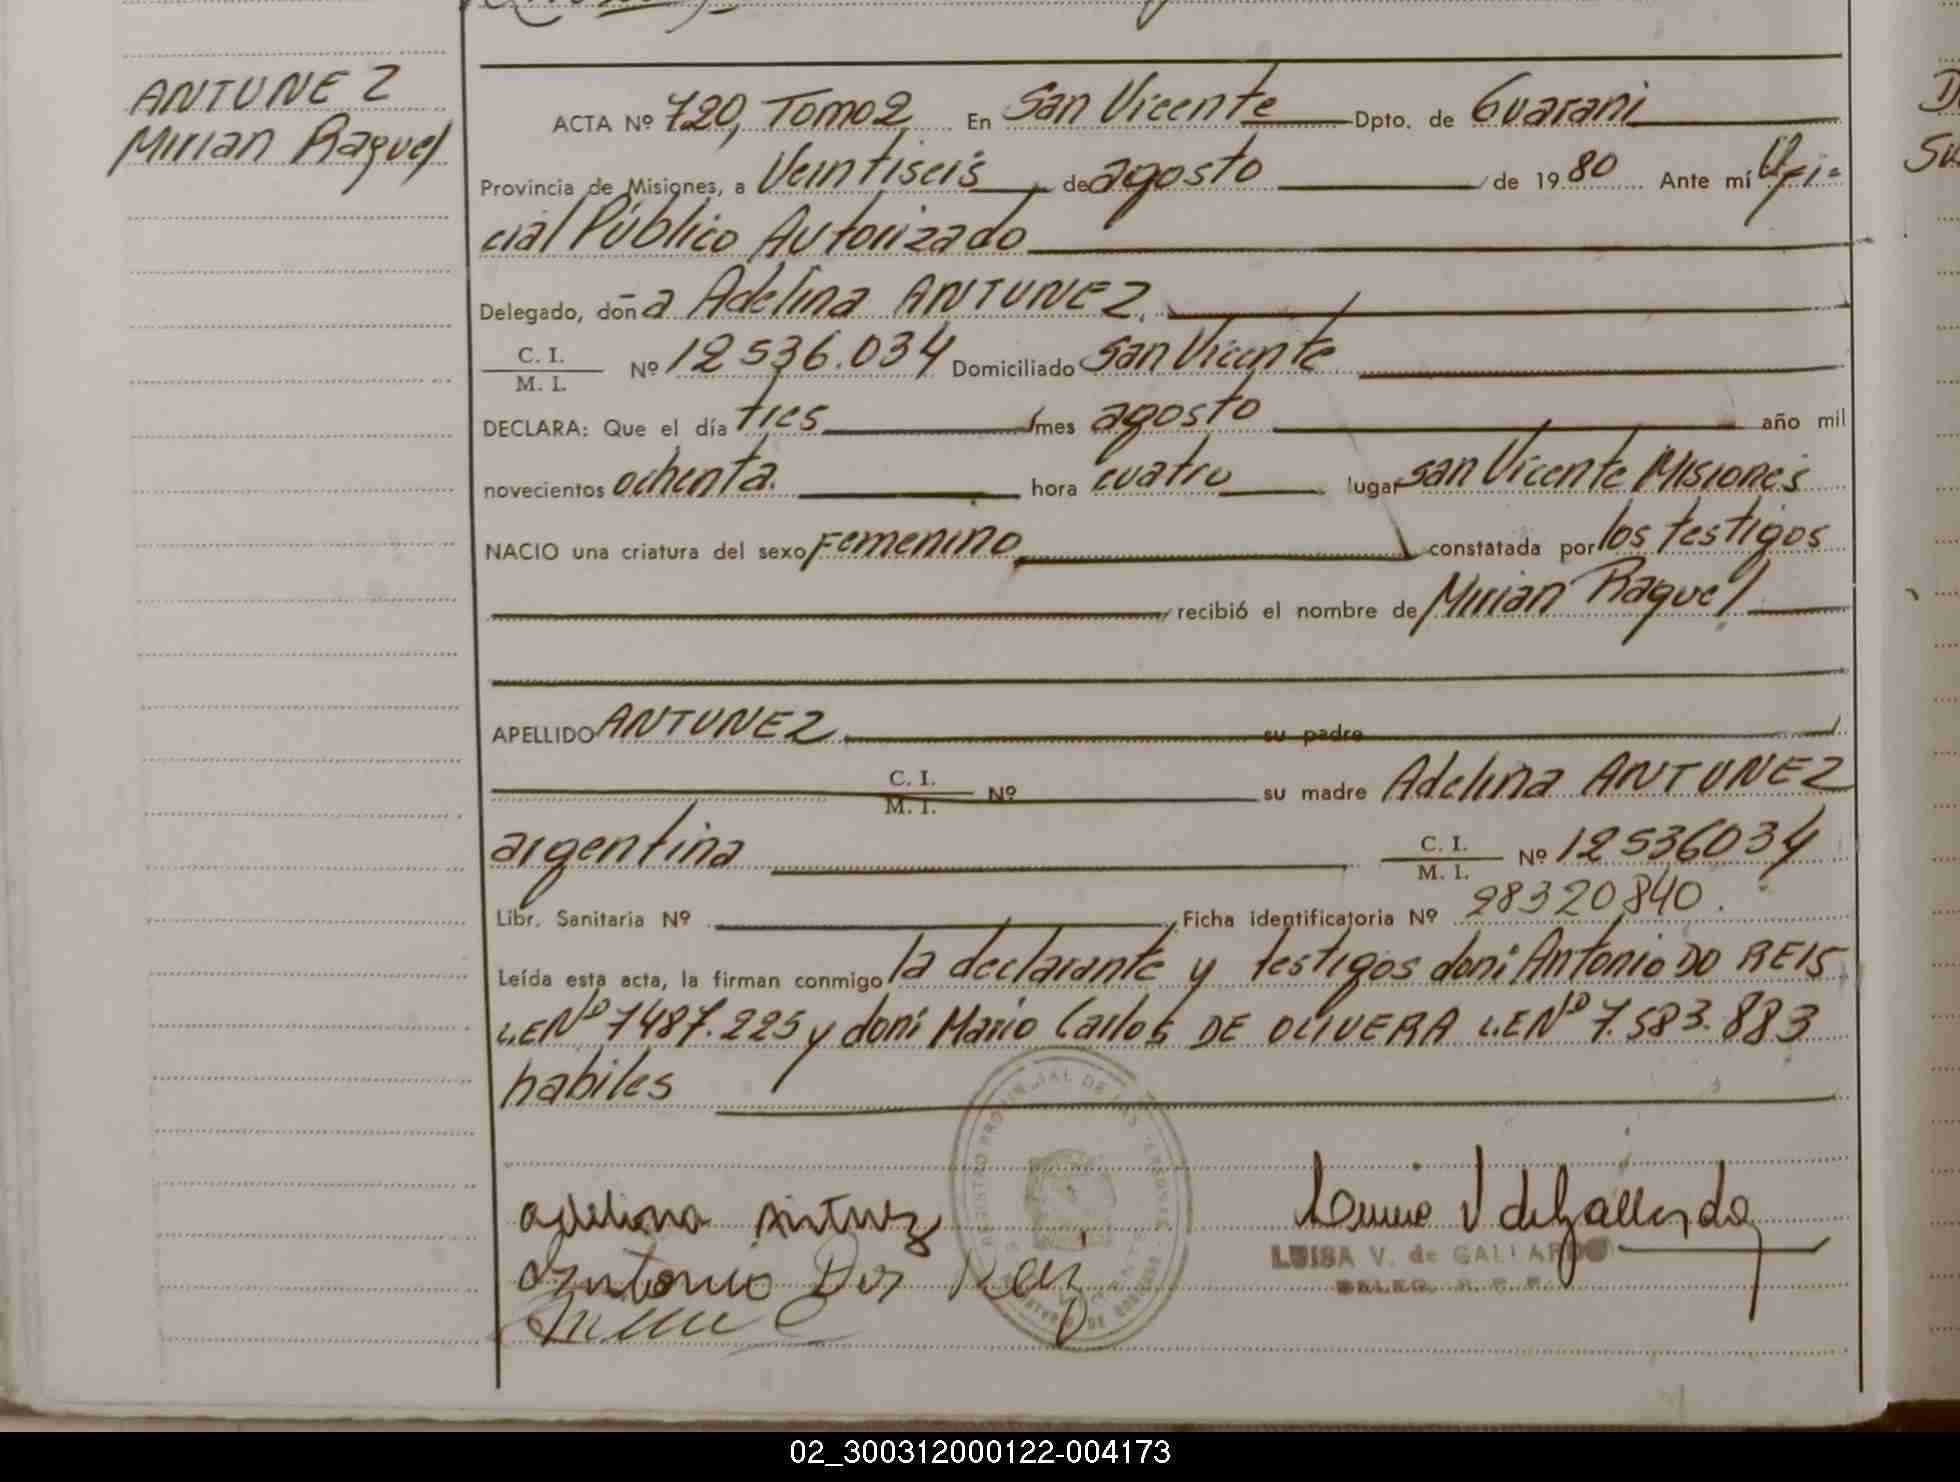 ANTUNEZ
Mirian Raquel
ACTA Nº 720, Tomo 2 En San Vicente Dpto. de Guarani
Provincia de Misiones, a Veintiseis de agosto de 1980 Ante mí Ofi=
cial Público Autorizado
Delegado, doña Adelina ANTUNEZ.
C. I. / M. I. Nº 12536.034 Domiciliado San Vicente
DECLARA: Que el día tres mes agosto año mil
novecientos ochenta. hora cuatro lugar San Vicente Misiones
NACIO una criatura del sexo Femenino constatada por los testigos
recibió el nombre de Mirian Raquel
APELLIDO ANTUNEZ su padre
C. I. / M. I. Nº su madre Adelina ANTUNEZ
argentina C. I. / M. I. Nº 12536034
Libr. Sanitaria Nº Ficha identificatoria Nº 28320840.
Leída esta acta, la firman conmigo la declarante y testigos don: Antonio DO REIS
L.E Nº 7487.225 y don: Mario Carlos DE OLIVERA L.E Nº 7.583.883
habiles
REGISTRO PROVINCIAL DE LAS PERSONAS
adelina antunez
Antonio Dos Reis
Luisa V de Gallardo
LUISA V. de GALLARDO
DELEG. R. P. P.
02_300312000122-004173